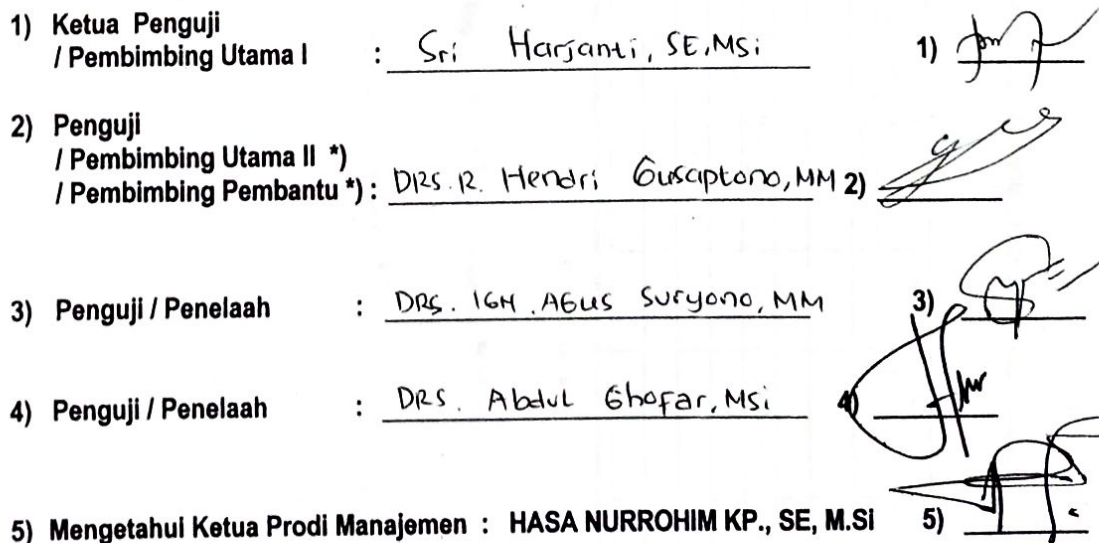 1) Ketua Penguji
/ Pembimbing Utama I : Sri Harjanti, SE,MSi 1)
2) Penguji
/ Pembimbing Utama II *)
/ Pembimbing Pembantu *) : DRS. R. Hendri Gusaptono, MM 2)
3) Penguji / Penelaah : DRS. IGN. AGUS Suryono, MM 3)
4) Penguji / Penelaah : DRS. Abdul Ghofar, MSi 4)
5) Mengetahui Ketua Prodi Manajemen : HASA NURROHIM KP., SE, M.Si 5)